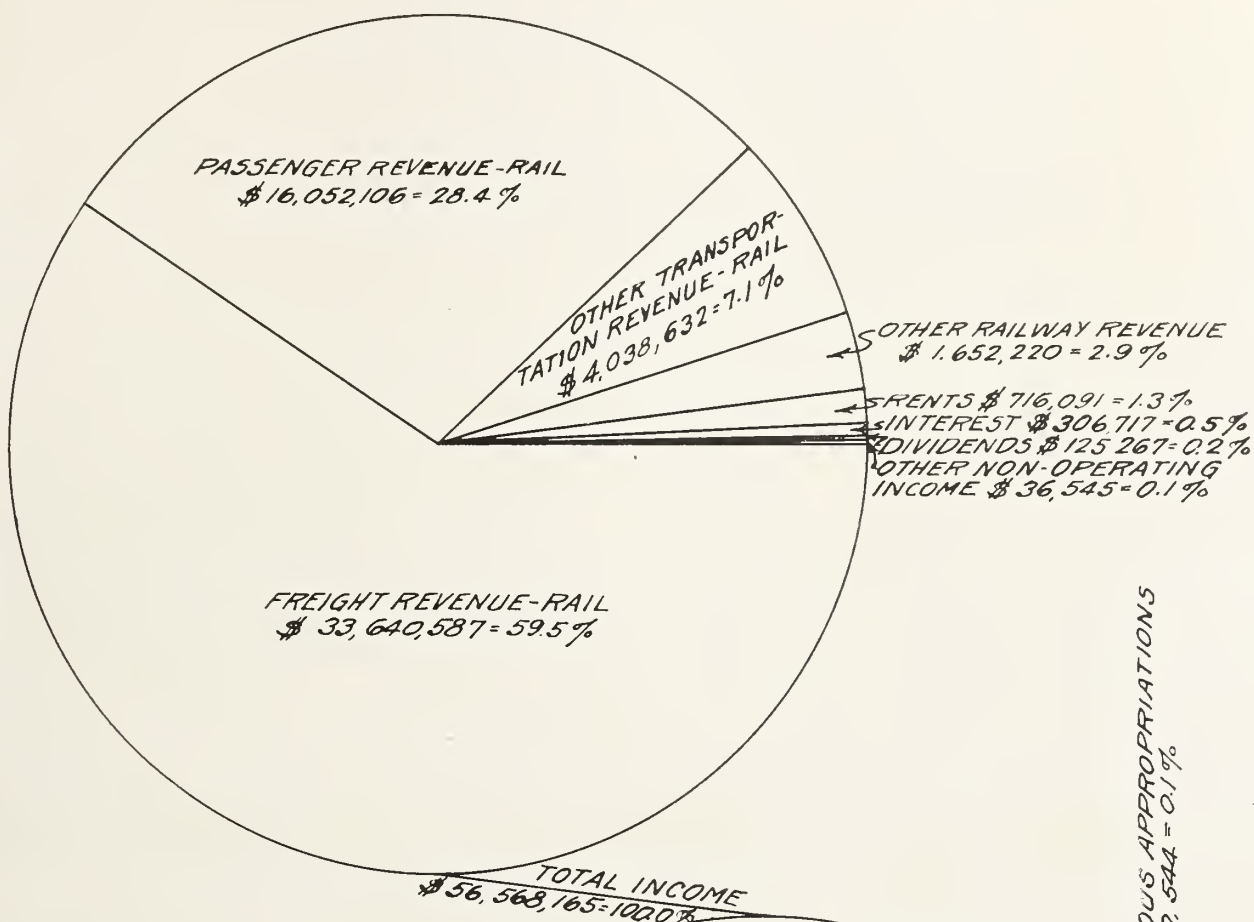 PASSENGER REVENUE-RAIL
$ 16,052,106 = 28.4 %
OTHER TRANSPOR-
TATION REVENUE-RAIL
$ 4,038,632 = 7.1 %
OTHER RAILWAY REVENUE
$ 1.652,220 = 2.9 %
RENTS $ 716,091 = 1.3 %
INTEREST $ 306,717 = 0.5 %
DIVIDENDS $ 125 267 = 0.2 %
OTHER NON-OPERATING
INCOME $ 36,545 = 0.1 %
FREIGHT REVENUE-RAIL
$ 33,640,587 = 59.5 %
TOTAL INCOME
$ 56,568,165 = 100.0 %
APPROPRIATIONS
544 = 0.1 %